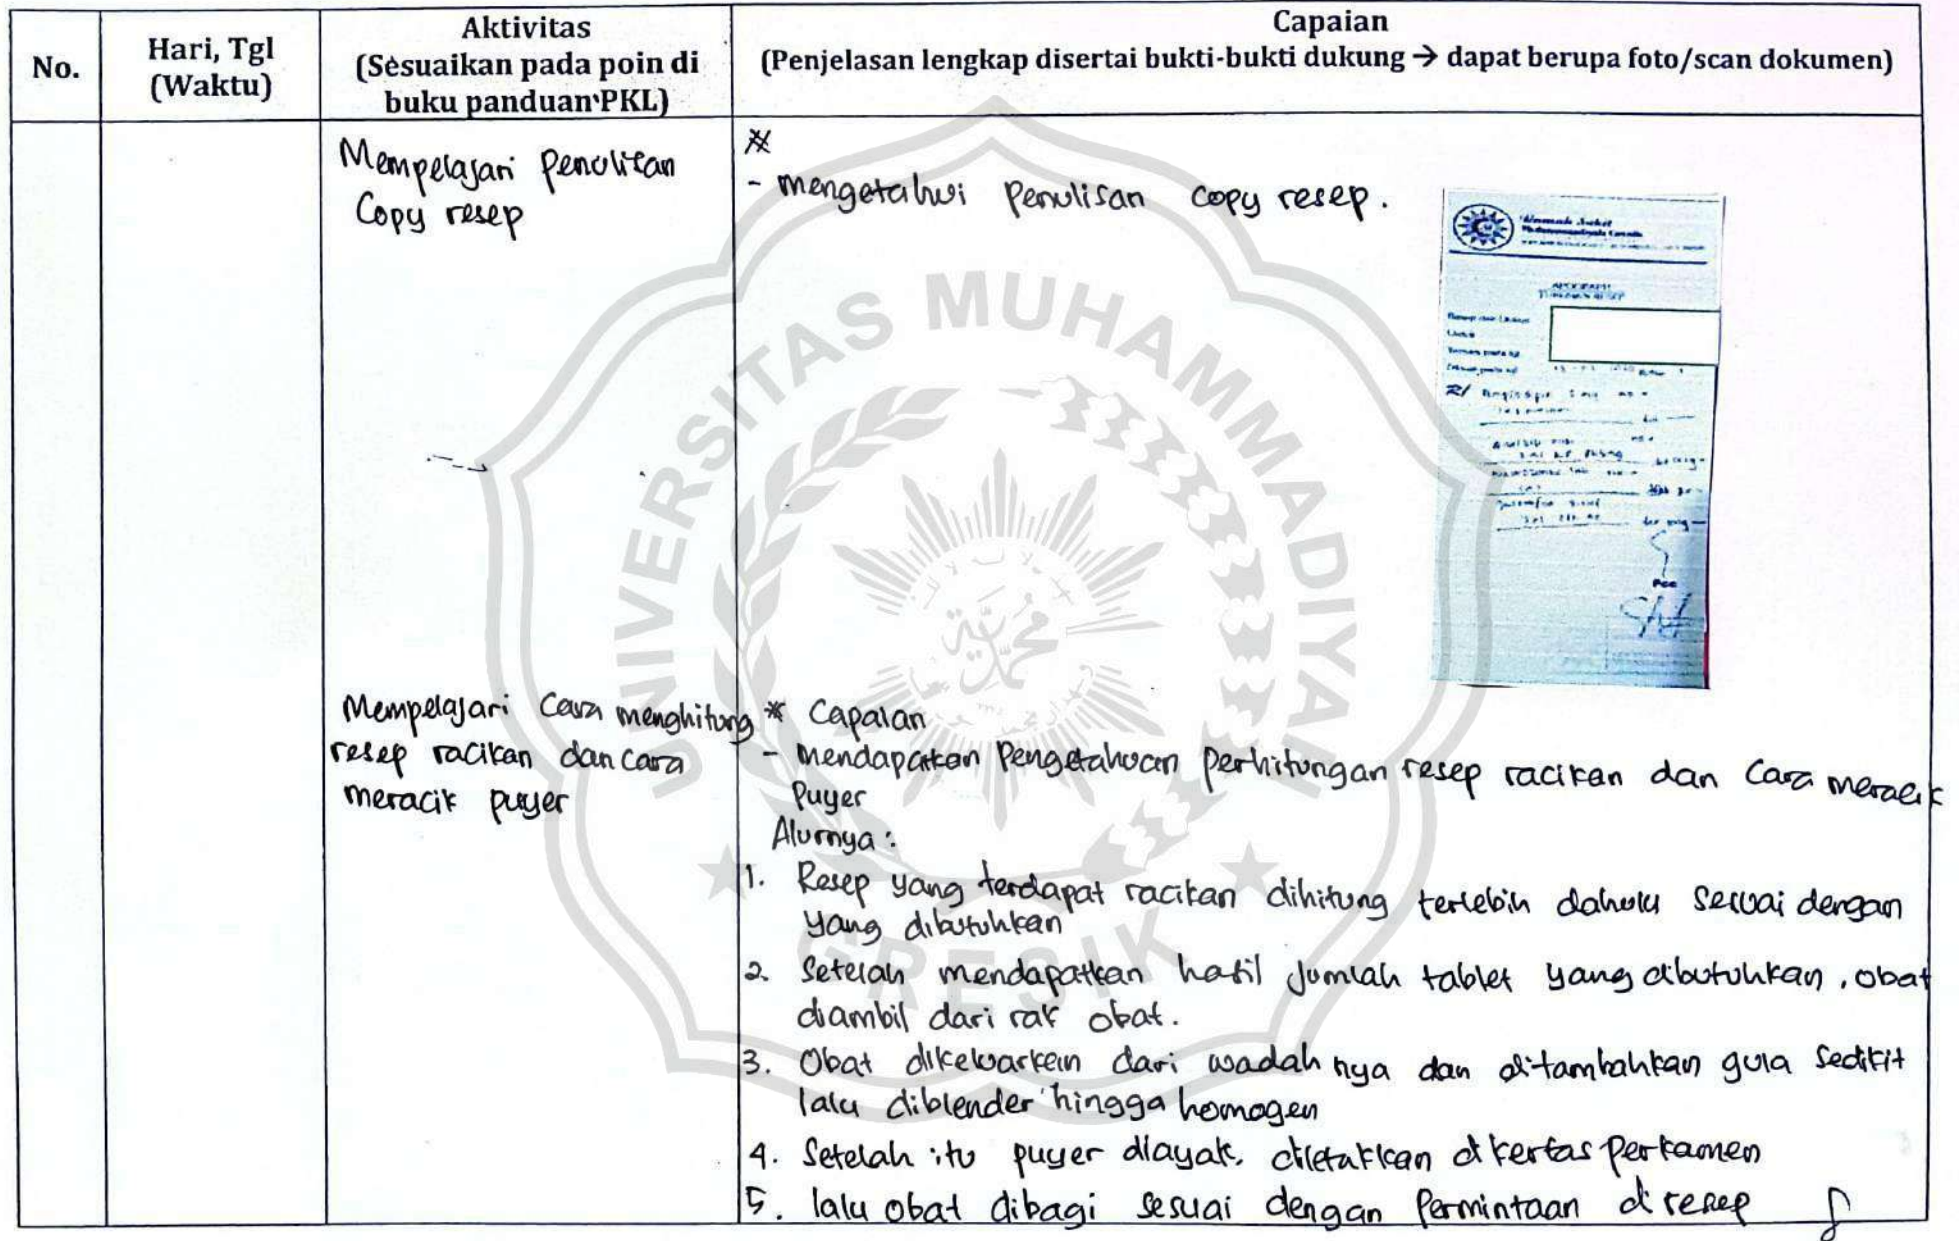 No.
Hari, Tgl
(Waktu)
Aktivitas
(Sesuaikan pada poin di
buku panduan PKL)
Capaian
(Penjelasan lengkap disertai bukti-bukti dukung → dapat berupa foto/scan dokumen)
Mempelajari Penulisan
Copy resep
*
- mengetahui Penulisan copy resep.
R/
Pcc
Mempelajari Cara menghitung
resep racikan dan cara
meracik puyer
* Capaian
- mendapatkan Pengetahuan perhitungan resep racikan dan Cara meracik
Puyer
Alurnya :
1. Resep yang terdapat racikan dihitung terlebih dahulu sesuai dengan
yang dibutuhkan
2. Setelah mendapatkan hasil jumlah tablet yang dibutuhkan, obat
diambil dari rak obat.
3. Obat dikeluarkan dari wadah nya dan ditambahkan gula sedikit
lalu diblender hingga homogen
4. Setelah itu puyer diayak, diletakkan di kertas perkamen
5. lalu obat dibagi sesuai dengan Permintaan di resep
UNIVERSITAS MUHAMMADIYAH
GRESIK